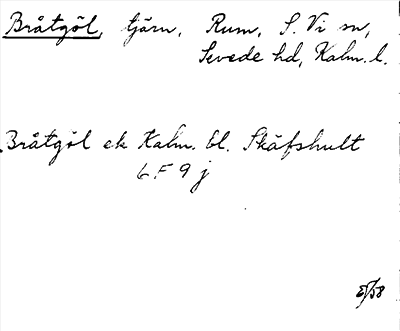 Bråtgöl, tjärn, Rum, S. Vi sn,
Sevede hd, Kalm. l.
Bråtgöl ek Kalm. bl. Skäfshult
6 F 9 j
/58